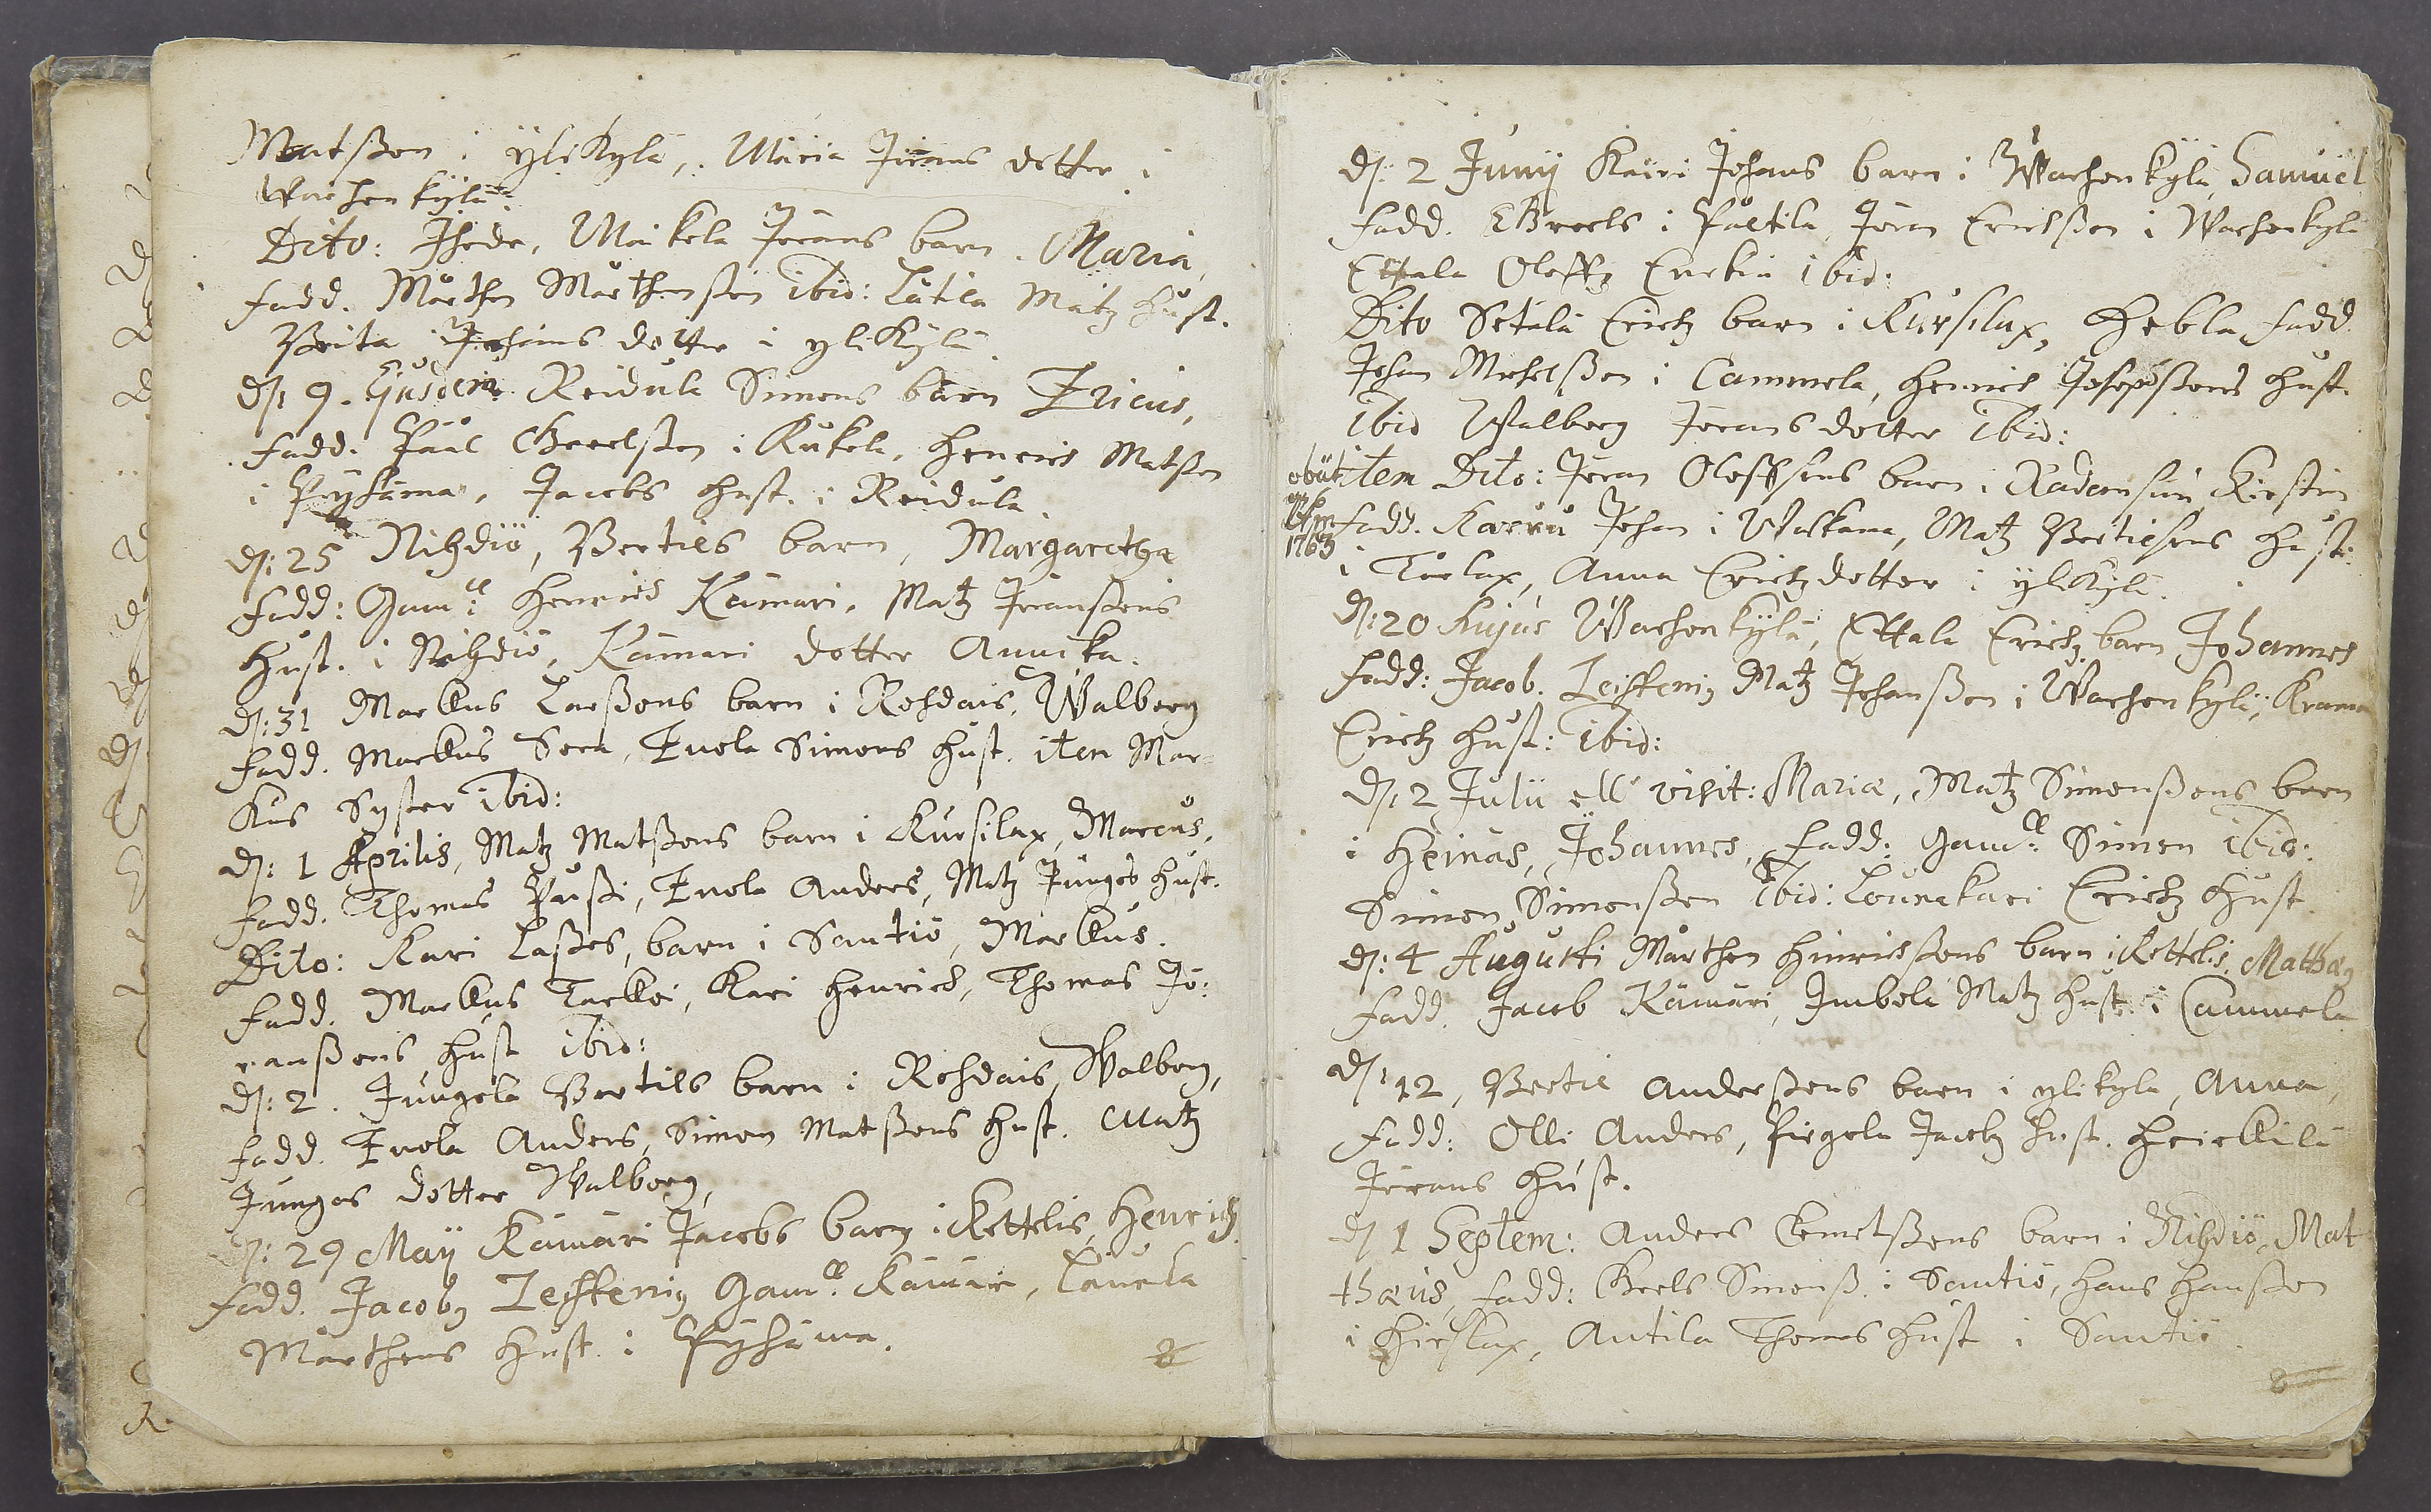 Matßon i ÿlikylä, Maria Jörans dotter i
Wachenkylä
Dito: Ihode, Mickola Jörans barn. Maria,
fadd. Mårthen Mårthenßon ibid: Lätila Matz hust.
Brita Johans dotter i ylikylä.
d: 9. Ejusdem Reidula Simons barn Ericus,
fadd. Påål Greelsson i Kukola, Henrich Matßon
i Pyhäma, Jacobs hust. i Reidula.
d: 25 Nihdiö, Bertils barn, Margaretha
fadd: Gam:ll Henrich Kämäri, Matz Jöranßons
hust. i Nihdiö, Kämäri dotter Annika.
d: 31 Markus Larßons barn i Rohdais, Walborg
fadd. Markus Sora, Evola Simons hust. item Mar-
kus Syster ibid:
d: 1 Aprilis, Matz Matßons barn i Kursilax, Marcus.
fadd. Thomas Påußi, Evola Anders, Matz Junges hust.
Dito: Kari Laßes, barn i Santiö, Markus.
fadd. Markus Tarkki, Kari Henrich, Thomas Jö-
ranßons hust ibid:
d: 2. Jungola Bertils barn i Rohdais, Walborg,
fadd. Evola Anders, Simon Matßons hust. Matz
Junges dotter Walborg,
d: 29 Maÿ Kämäri Jacobs barn i Kettelis, Henrich
fadd. Jacobg Leistenig Gam:ll Kämäri, Lånila
Mårthens hust. i Pyhäma.
d: 2 Junij Käiri Johans barn i Wachenkylä, Samuel
fadd. Greels i Påltila, Jöran Erichßon i Wachenkyla
Ettala Oloffz Erekin ibid:
Dito Setälä Erichz barn i Kursilax, Hebla fadd.
Johan Michelßon i Cammela, Henrich Josepßons hust.
ibid Walborg Jörans dotter ibid:
obiit item Dito: Jöran Oloffsons barn i Radansuu Kirstin
1763 fadd. Karru Johan i Warkana, Matz Bertilsons hust:
i Torlax, Anna Erichz dotter i ylikylä.
d: 20 Hujus Wachenkylä, Ettala Erichz barn Johannes
fadd: Jacob. Leistenig Matz Johanßon i Wachenkylä, Krama
Erichz hust: ibid:
d: 2 Julii ell visit: Mariæ, Matz Simonßons barn
i Heinäs, Johannes, fadd: Gam:ll Simon ibid:
Simon Simonßon ibid: Lounakari Erichz hust
d: 4 Augusti Mårthen Hinrichßons barn i Kettelis, Matthæg
fadd. Jacob Kämäri, Imbola Matz hust i Cammela
d: 12, Bertil Anderßons barn i ylikyla, Anna,
fadd: Olli Anders, Pirgola Jacobz hust. Heickilä
Jörans hust.
d 1 Septem: Anders Clemetßons barn i Nihdiö, Mat
thæus, fadd: Greels Simonß. i Santiö, Hans Hanßon
i Hirslax, Antila Thomas hust i Santiö.